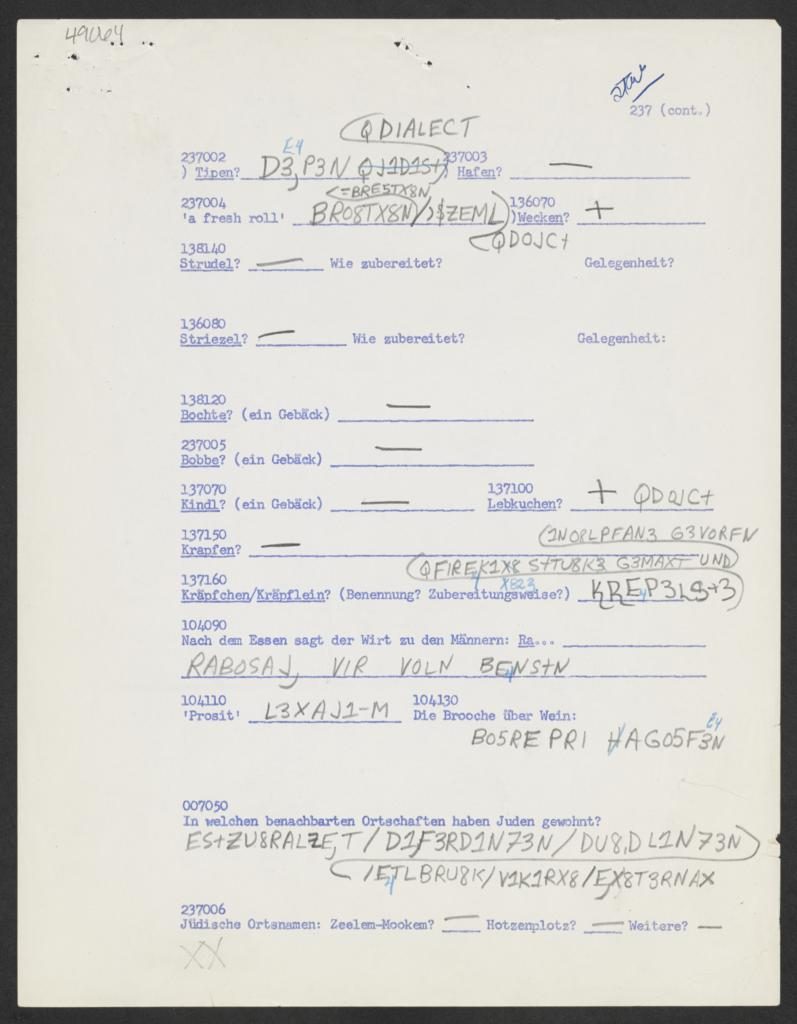 49064
237 (cont.)
QDIALECT
E4
237002 237003
) Tipen? D3,P3N QJ1D1S+ ) Hafen? —
<=BRE5TX8N
237004 136070
'a fresh roll' BRO8TX8N/)$ZEML )Wecken? +
QDOJC+
138140
Strudel? — Wie zubereitet? Gelegenheit?
136080
Striezel? — Wie zubereitet? Gelegenheit:
138120
Bochte? (ein Gebäck) —
237005
Bobbe? (ein Gebäck) —
137070 137100
Kindl? (ein Gebäck) — Lebkuchen? + QDOJC+
137150 (1NO8LPFAN3 G3VORFN
Krapfen? —
(QFIREK1X8 S+TU8K3 G3MAXT UND
137160 X823
Kräpfchen/Kräpflein? (Benennung? Zubereitungsweise?) KREP3LS+3
104090
Nach dem Essen sagt der Wirt zu den Männern: Ra...
RABOSAJ, VIR VOLN BENS+N
104110 104130
'Prosit' L3XAJ1-M Die Brooche über Wein:
E4
BO5RE PRI HAGO5F3N
007050
In welchen benachbarten Ortschaften haben Juden gewohnt?
ES+ZU8RALZE,T / D1,F3RD1N73N / DU8,DL1N73N
/E4TLBRU8K/V1K1RX8/E,X8T3RNAX
237006
Jüdische Ortsnamen: Zeelem-Mookem? — Hotzenplotz? — Weitere? —
XX